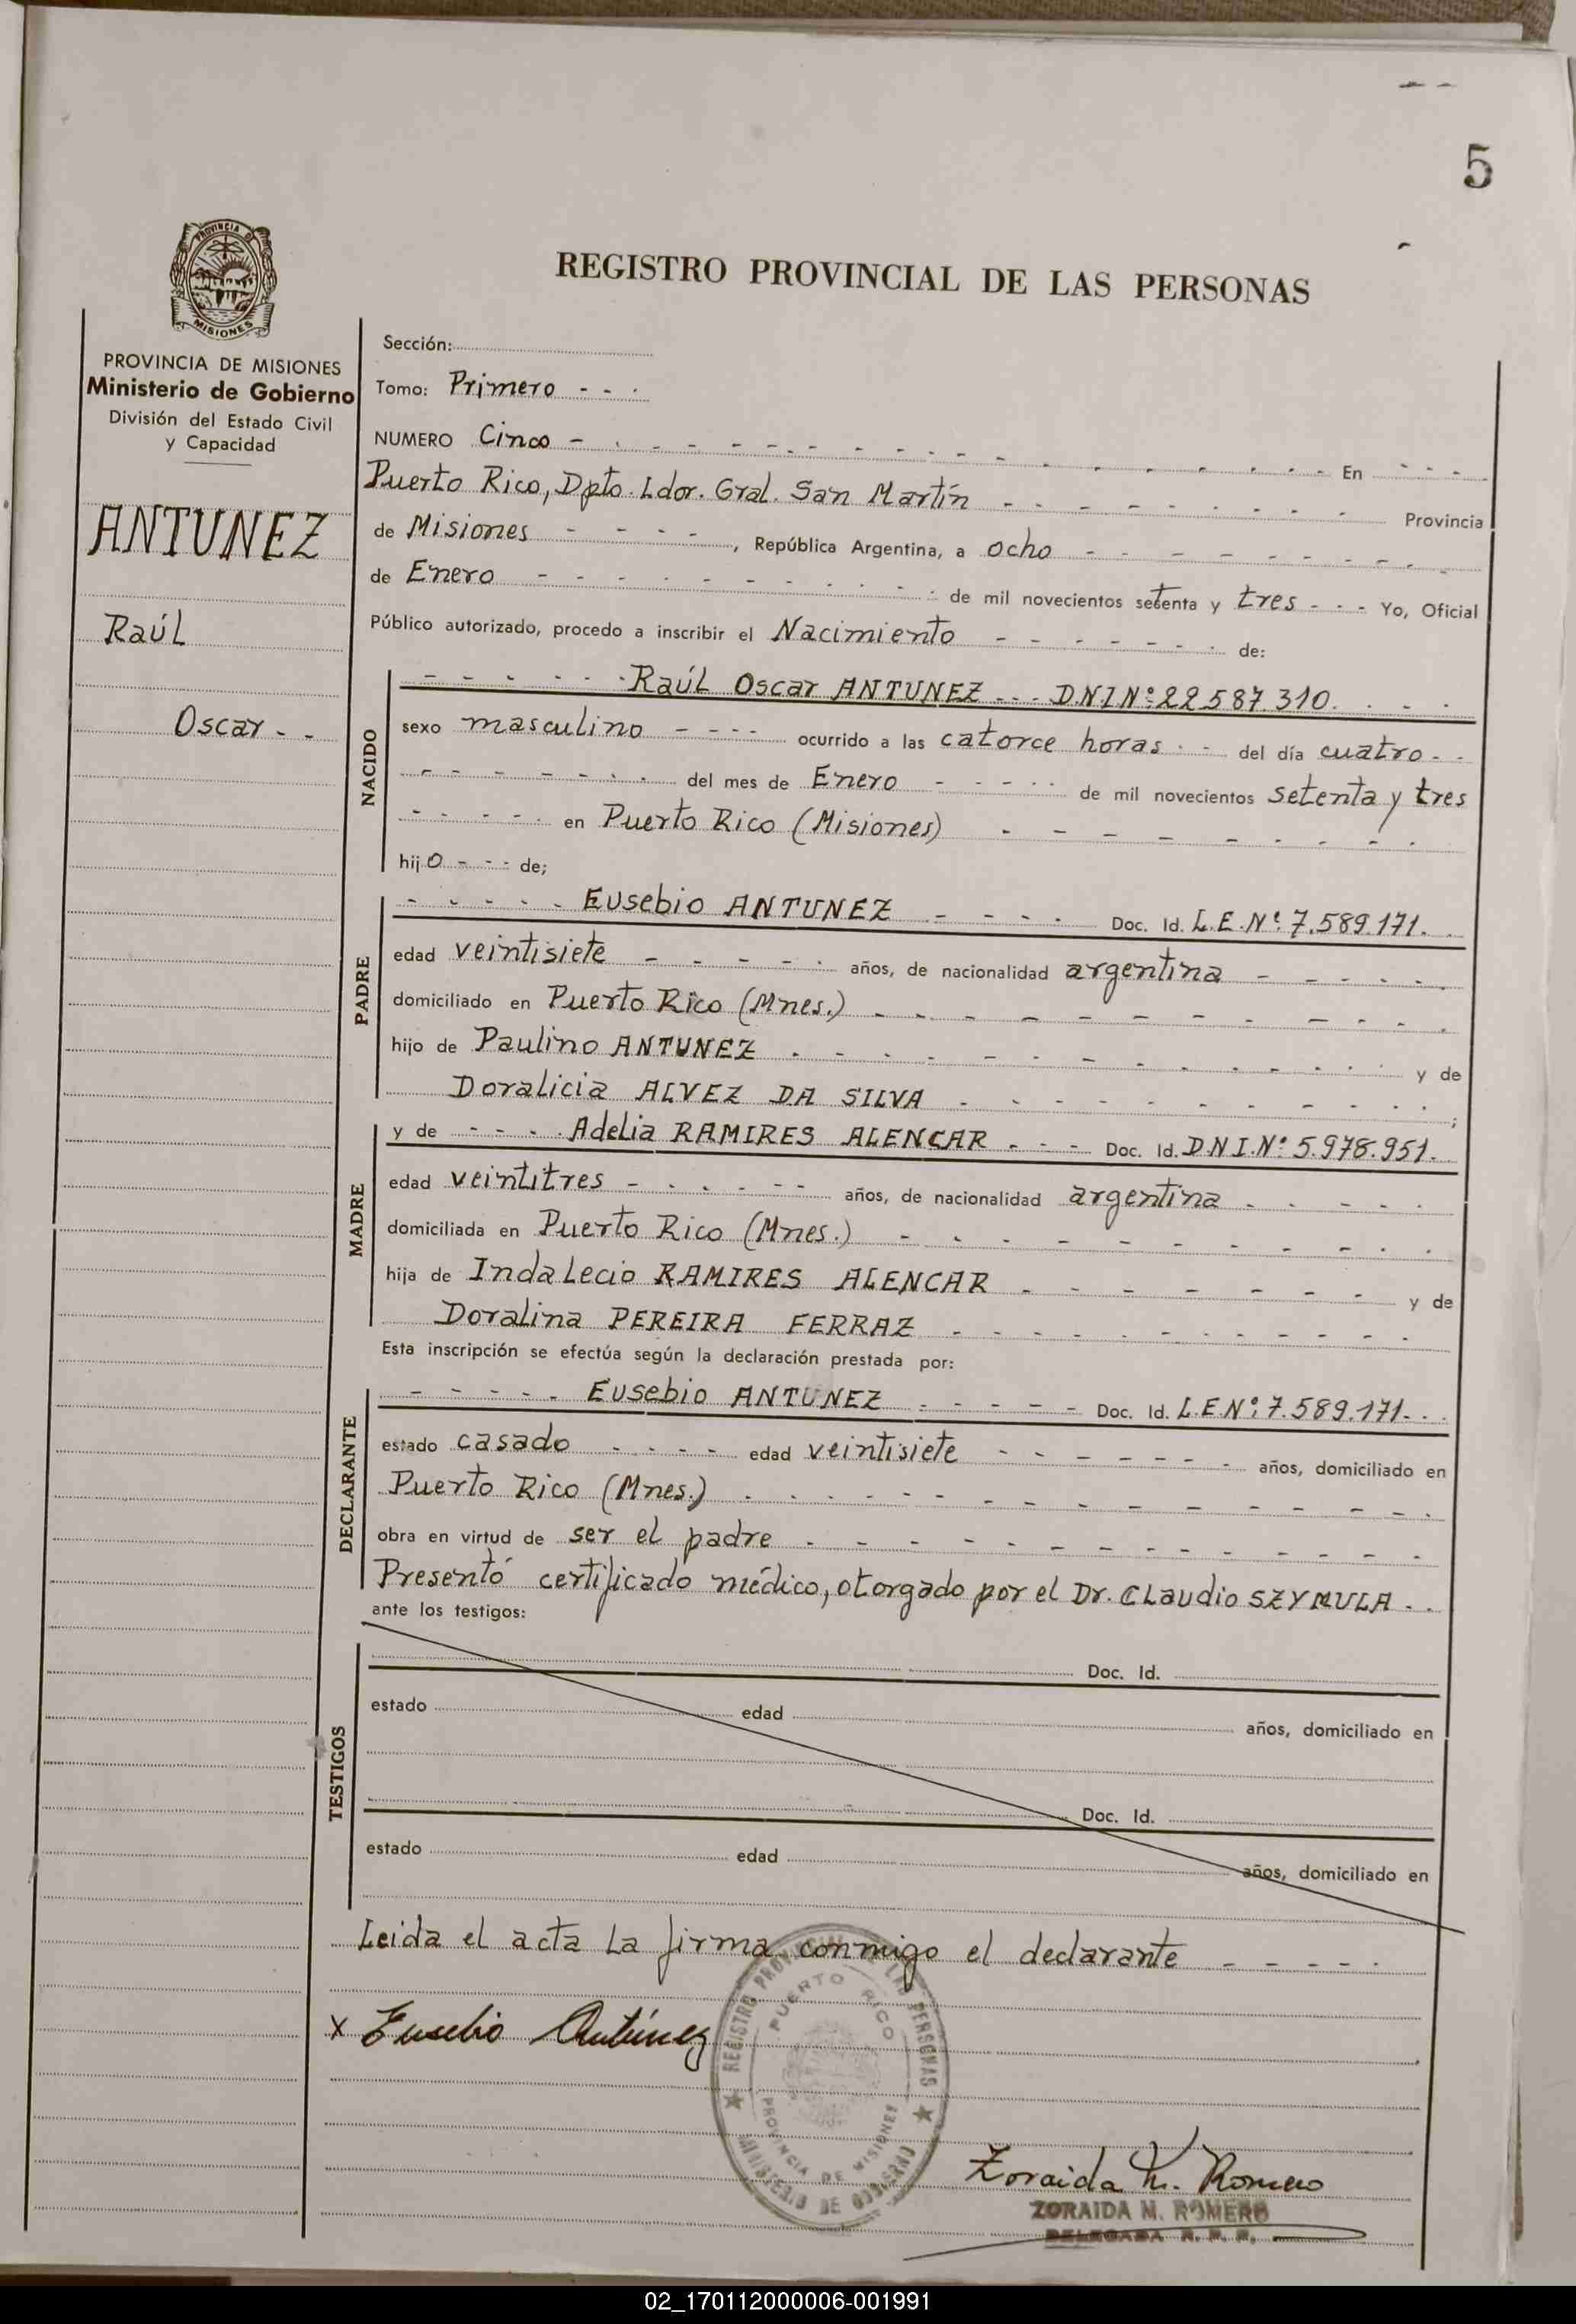 5
PROVINCIA DE
MISIONES
REGISTRO PROVINCIAL DE LAS PERSONAS
PROVINCIA DE MISIONES
Ministerio de Gobierno
División del Estado Civil
y Capacidad
ANTUNEZ
Raúl
Oscar - -
Sección:
Tomo: Primero - - -
NUMERO Cinco - En
Puerto Rico, Dpto. Ldor. Gral. San Martín - Provincia
de Misiones - - - -, República Argentina, a ocho - -
de Enero - - de mil novecientos setenta y tres - - - Yo, Oficial
Público autorizado, procedo a inscribir el Nacimiento - - de:
Raúl Oscar ANTUNEZ - - - D.N.I Nº: 22.587.310.
NACIDO
sexo masculino - - - - ocurrido a las catorce horas - - del día cuatro - -
del mes de Enero - - de mil novecientos setenta y tres
en Puerto Rico (Misiones) - -
hijo - - - de;
PADRE
Eusebio ANTUNEZ - - - - Doc. Id. L.E.Nº: 7.589.171.
edad veintisiete - - años, de nacionalidad argentina - -
domiciliado en Puerto Rico (Mnes.) - -
hijo de Paulino ANTUNEZ - - y de
Doralicia ALVEZ DA SILVA - - ;
MADRE
y de - - - - Adelia RAMIRES ALENCAR - - - Doc. Id. D.N.I.Nº 5.978.951.
edad veintitres - - años, de nacionalidad argentina - -
domiciliada en Puerto Rico (Mnes.) - -
hija de Indalecio RAMIRES ALENCAR - - y de
Doralina PEREIRA FERRAZ - -
Esta inscripción se efectúa según la declaración prestada por:
DECLARANTE
Eusebio ANTUNEZ - - Doc. Id. L.E.Nº: 7.589.171.
estado casado - - - - edad veintisiete - - años, domiciliado en
Puerto Rico (Mnes.) - -
obra en virtud de ser el padre - -
Presentó certificado médico, otorgado por el Dr. Claudio SZYMULA - -
ante los testigos:
TESTIGOS
Doc. Id.
estado edad años, domiciliado en
Doc. Id.
estado edad años, domiciliado en
Leida el acta la firma conmigo el declarante - -
x Eusebio Antúnez
REGISTRO PROVINCIAL DE LAS PERSONAS
PUERTO RICO
PROVINCIA DE MISIONES
MINISTERIO DE GOBIERNO
Zoraida M. Romero
ZORAIDA M. ROMERO
DELEGADA R. P. P.
02_170112000006-001991